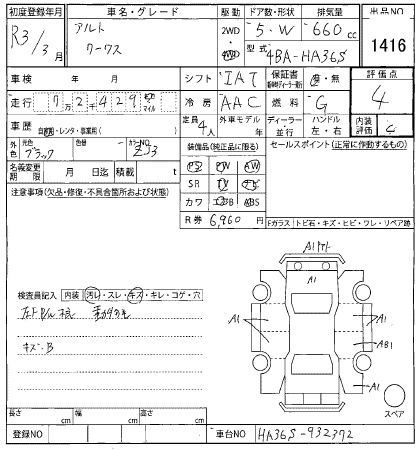 初度登録年月 車名・グレード 駆動 ドア数・形状 排気量 出品NO
R3/3月 アルト ワークス 2WD・4WD 5・W 660cc 1416
型式 4BA-HA36S
車検 年 月 シフト IAT 保証書 有・無 評価点
走行 7万2千429 キロ マイル 冷房 AAC 燃料 G 4
車歴 自家用・レンタ・事業用( ) 定員 4人 外車モデル 年 ディーラー・並行 ハンドル 左・右 内装評価 4
外色 元色 ブラック 色替 カラーNO ZJ3 装備品(純正品に限る) セールスポイント(正常に作動するもの)
名義変更期限 月 日迄 積載 t PS PW AW
注意事項(欠品・修復・不具合箇所および状態) SR TV ナビ
カワ エアB ABS
R券 6,960円
Fガラス トビ石・キズ・ヒビ・ワレ・リペア跡
A1
A1
検査員記入 内装 汚レ・スレ・キズ・キレ・コゲ・穴
A1 A1
AB1
キズ・B
A1
スペア
長さ cm 幅 cm 高さ cm
登録NO 車台NO HA36S-932372